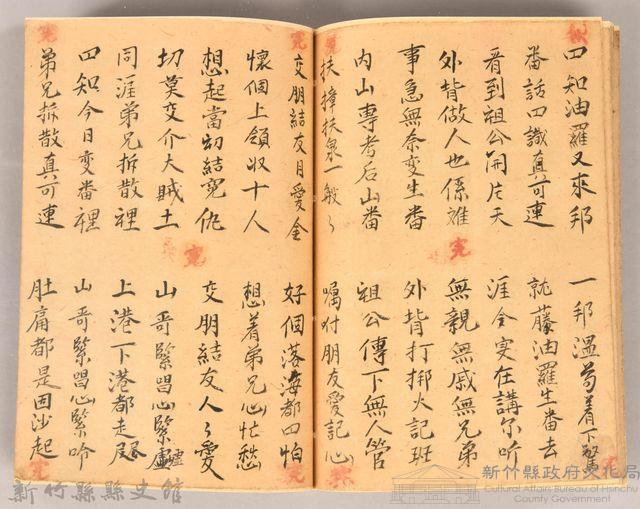 四知油羅又來邦 一邦溫苟着下驚
番話四識真可連 就藤油羅生番去
看到祖公開片天 涯全实在講尔听
外背做人也係难 無親無戚無兄弟
事急無奈变生番 外背打挷火記班
内山專考后山番 祖公傳下無人管
扶撞扶泉一般々 囑付朋友愛記心
交朋結友目愛金 好個落海都四怕
懷個上領収十人 想着弟兄心忙愁
想起當初結寃仇 交朋結友人々愛
切莫交介大贼土 山哥緊唱心緊
同涯弟兄拆散裡 上港下港都走尽
四知今日变番裡 山哥緊唱心緊吟
弟兄拆散真可連 肚痛都是因沙起
新竹縣縣史館
新竹縣政府文化局
Cultural Affairs Bureau of Hsinchu County Government